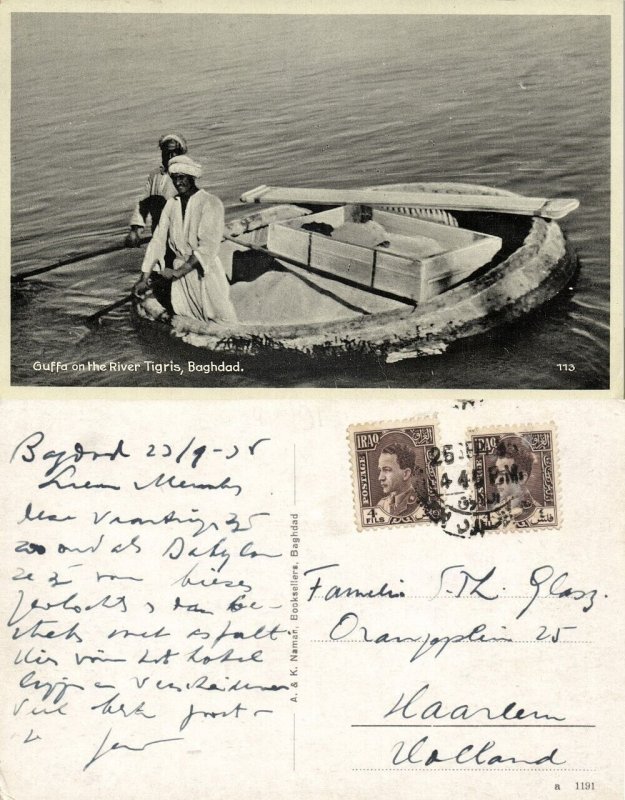 Guffa on the River Tigris, Baghdad.
113
Bagdad 23/9-38
Lieve
deze vaartuigen zijn
zoo oud als Babylon
ze zijn van biezen
gevlochten & dan be-
met asfalt.
Hier vóór het hotel
liggen er verscheidene
Veel
A. & K. Naman, Booksellers, Baghdad
IRAQ
POSTAGE
4
FILS
IRAQ
4 4 P.M.
فلس
Familie Th. Glasz.
Oranjeplein 25
Haarlem
Holland
a 1191